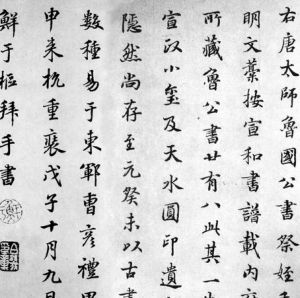 右唐太師魯國公書祭姪
明文藁按宣和書譜載內
所藏魯公書廿有八此其一
宣政小璽及天水圓印遺
隱然尚存至元癸未以古書
數種易于東鄆曹彥禮甲
申来杭重裝戊子十月九日
鮮于樞拜手書